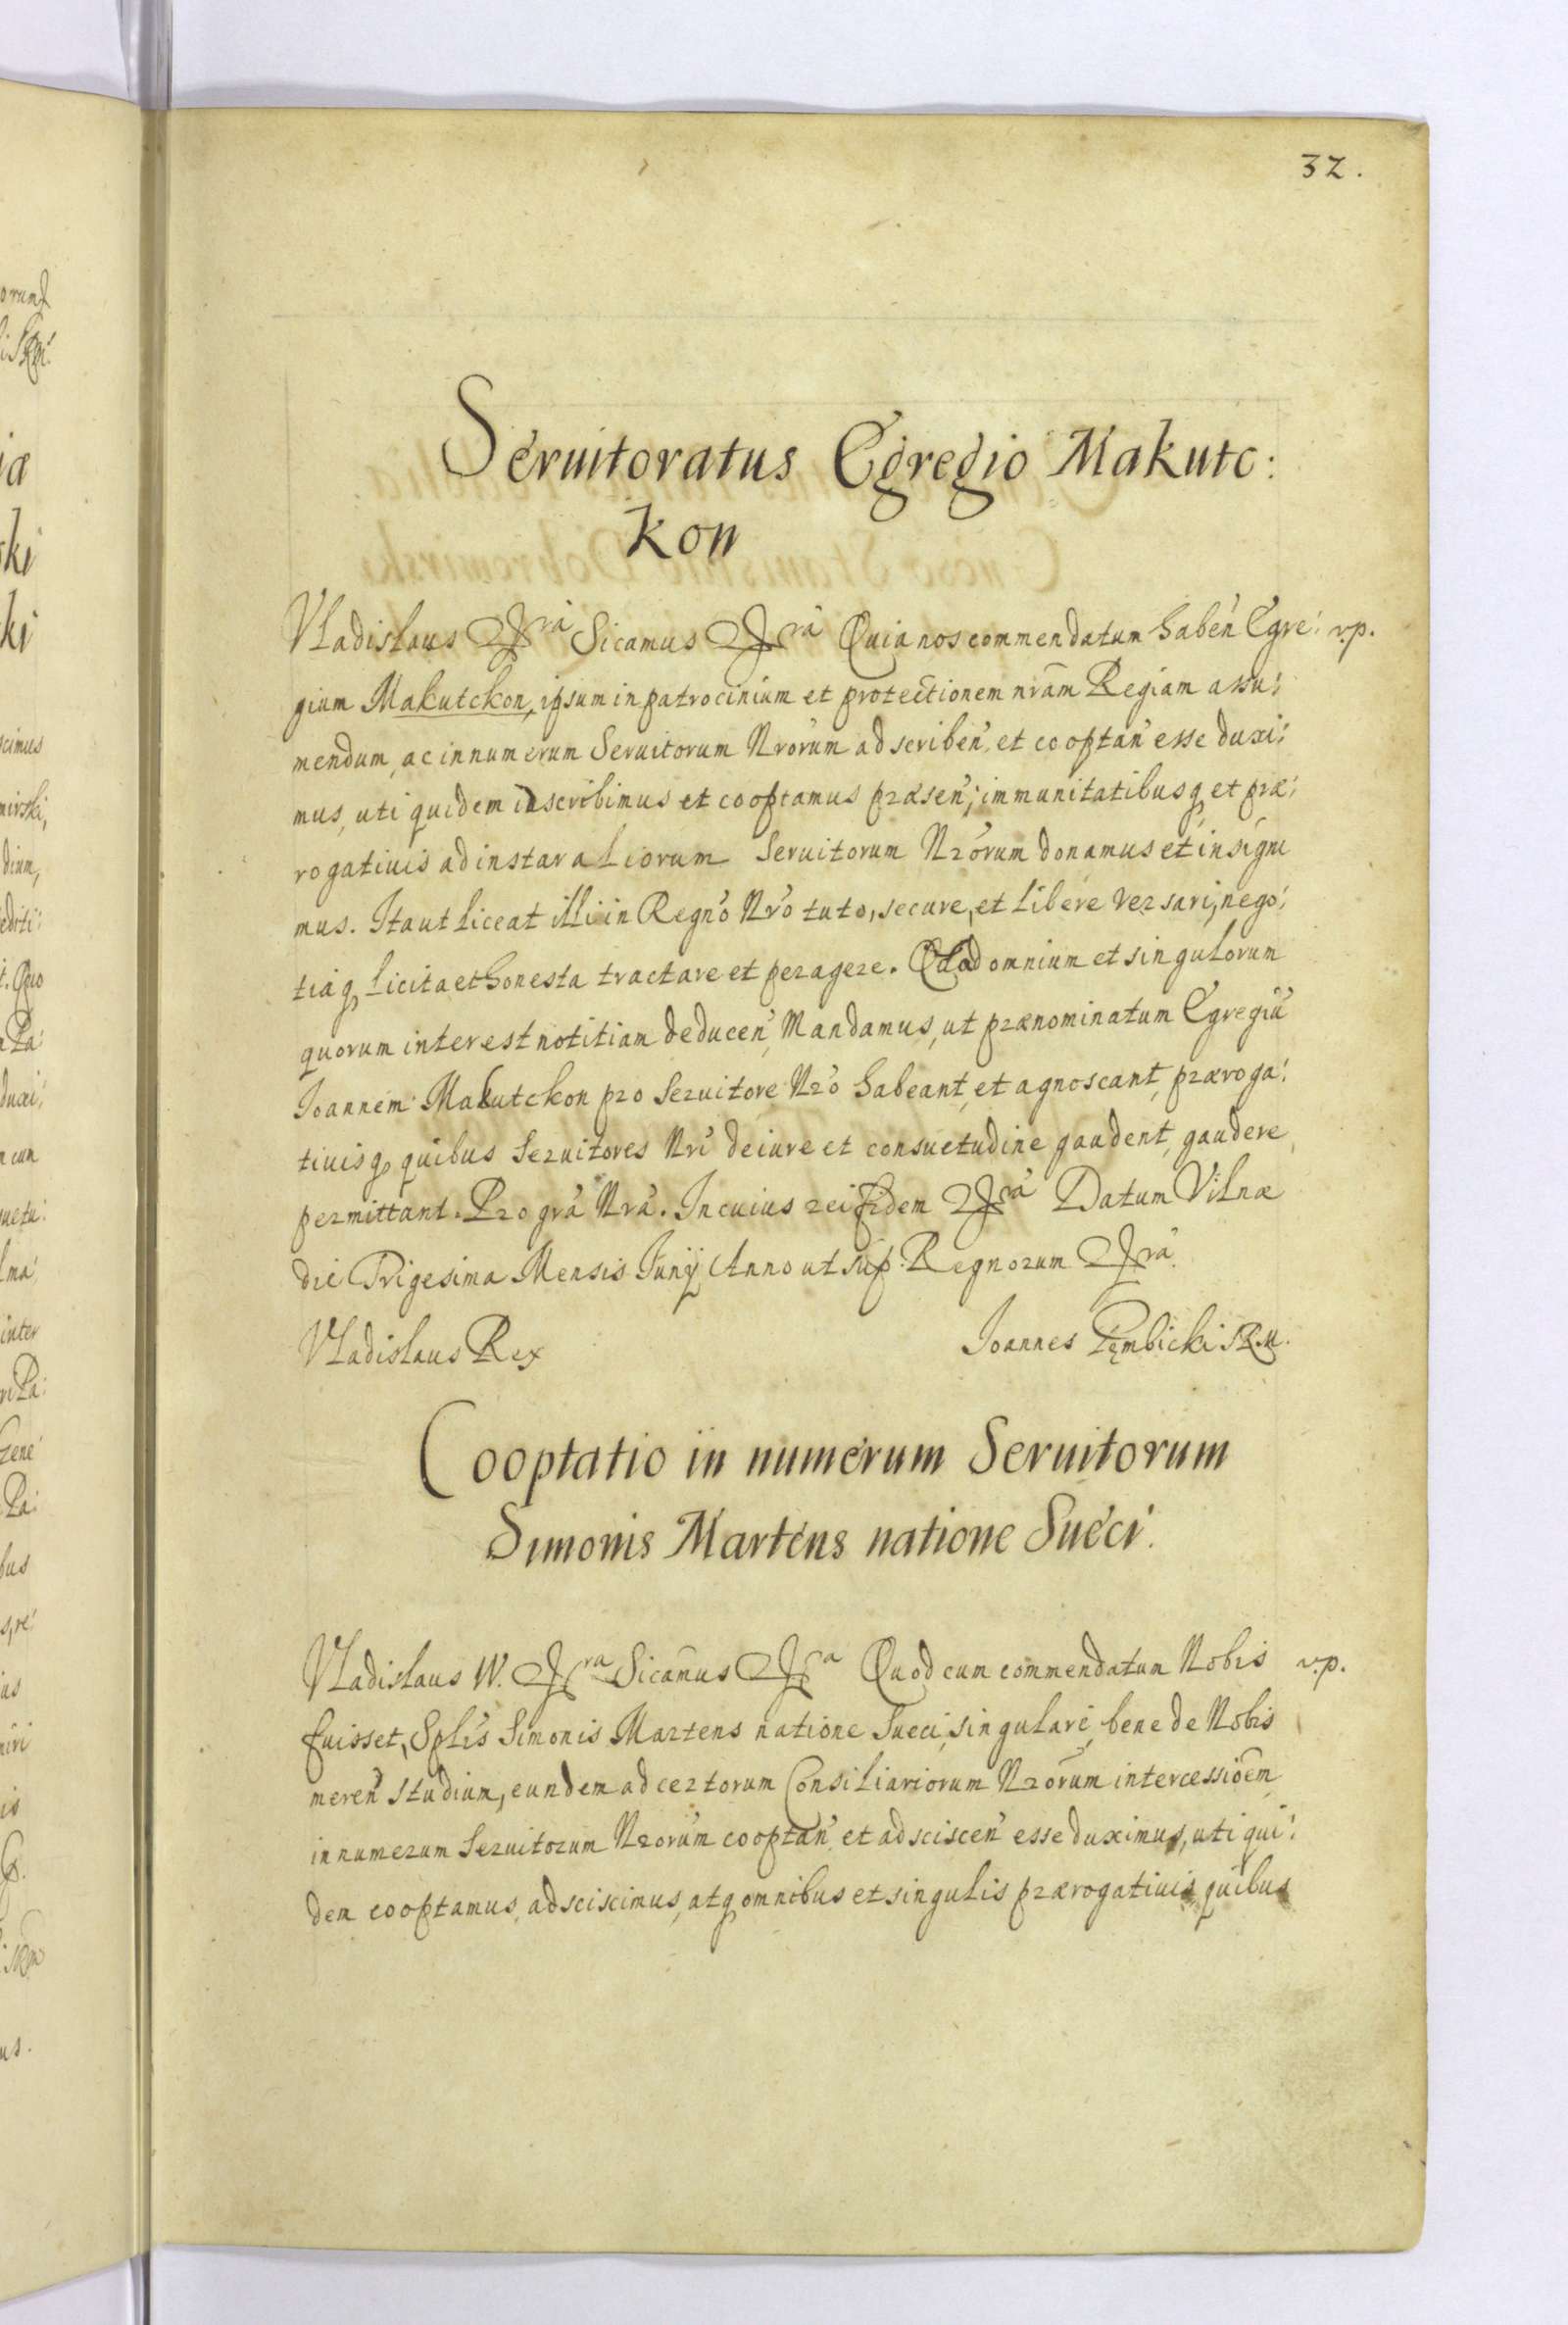 32.
Seruitoratus Egregio Makutc:
kon
Vladislaus &ra Sicamus &ra Quia nos commendatum haben̄ Egre: v.p.
gium Makutckon, ipsum in patrocinium et protectionem nr̄am Regiam assu:
mendum, ac in numerum Seruitorum Nrōrum adscriben̄, et cooptan̄ esse duxi:
mus, uti quidem inscribimus et cooptamus præsen̄; immunitatibusq, et præ:
rogatiuis ad instar aliorum Seruitorum Nrōrum donamus et insigni
mus. Ita ut liceat illi in Regno Nrō tuto, secure, et libere versari, nego:
tiaq, licita et honesta tractare et peragere. Qd ad omnium et singulorum
quorum interest notitiam deducen̄, Mandamus, ut prænominatum Egregiū
Joannem Makutckon pro Seruitore Nrō habeant, et agnoscant, præroga:
tiuisq, quibus Seruitores Nrī de iure et consuetudine gaudent, gaudere
permittant. Pro grā Nrā. In cuius rei fidem &ra Datum Vilnæ
die Trigesima Mensis Junij Anno ut sup: Regnorum &ra.
Vladislaus Rex Joannes Gębicki SRM.
Cooptatio in numerum Seruitorum
Simonis Martens natione Sueci.
Vladislaus IV. &ra Sicam̄us &ra Quod cum commendatum Nobis v.p.
fuisset, Splis Simonis Martens natione Sueci, singulare, bene de Nobis
meren̄ studium, eundem ad certorum Consiliariorum Nrōrum intercessiōem
in numerum Seruitorum Nrōrum cooptan̄, et adsciscen̄ esse duximus, uti qui:
dem cooptamus, adsciscimus, atq, omnibus et singulis prærogatiuis, quibus